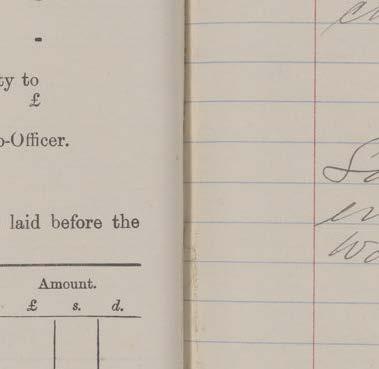 ty to
£
o-Officer.
laid before the
Amount.
£ s. d.